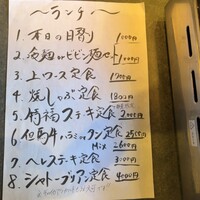 〜ランチ〜
1. 本日の日替り 1000円
2. 冷麺orビビン麺セット 1000円
3. 上ロース定食 1700円
4. 焼しゃぶ定食 1800円
5. 特福ステーキ定食 2000円
6 但馬牛 タン定食 2500円
Mix 2600円
7 ヘレステーキ定食 3100円
8. シャトーブリアン定食 4000円